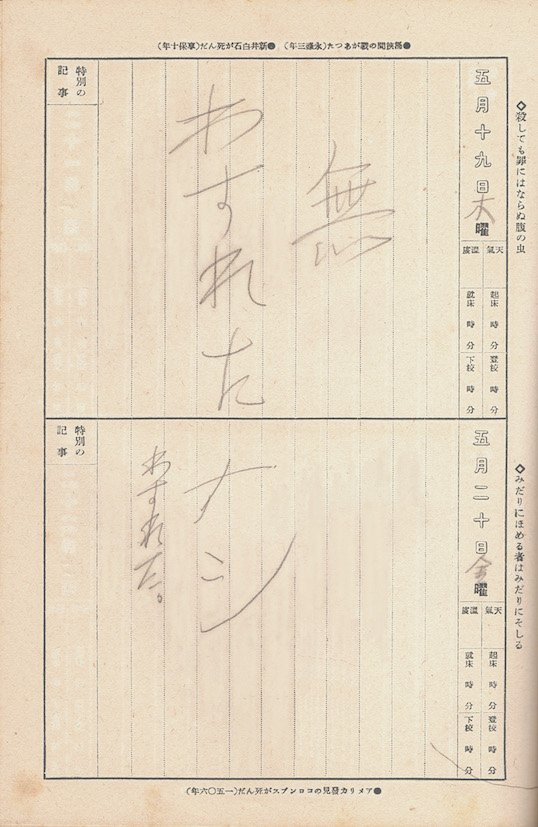 ●桶狹間の戰があつた(永祿三年)　●新井白石が死んだ(享保十年)
◇殺しても罪にはならぬ腹の虫
五月十九日木曜
天氣
溫度
起床　時　分
就床　時　分
登校　時　分
下校　時　分
無
わすれた
特別の
記事
◇みだりにほめる者はみだりにそしる
五月二十日金曜
天氣
溫度
起床　時　分
就床　時　分
登校　時　分
下校　時　分
ナシ
わすれた。
特別の
記事
●アメリカ發見のコロンブスが死んだ(一五〇六年)